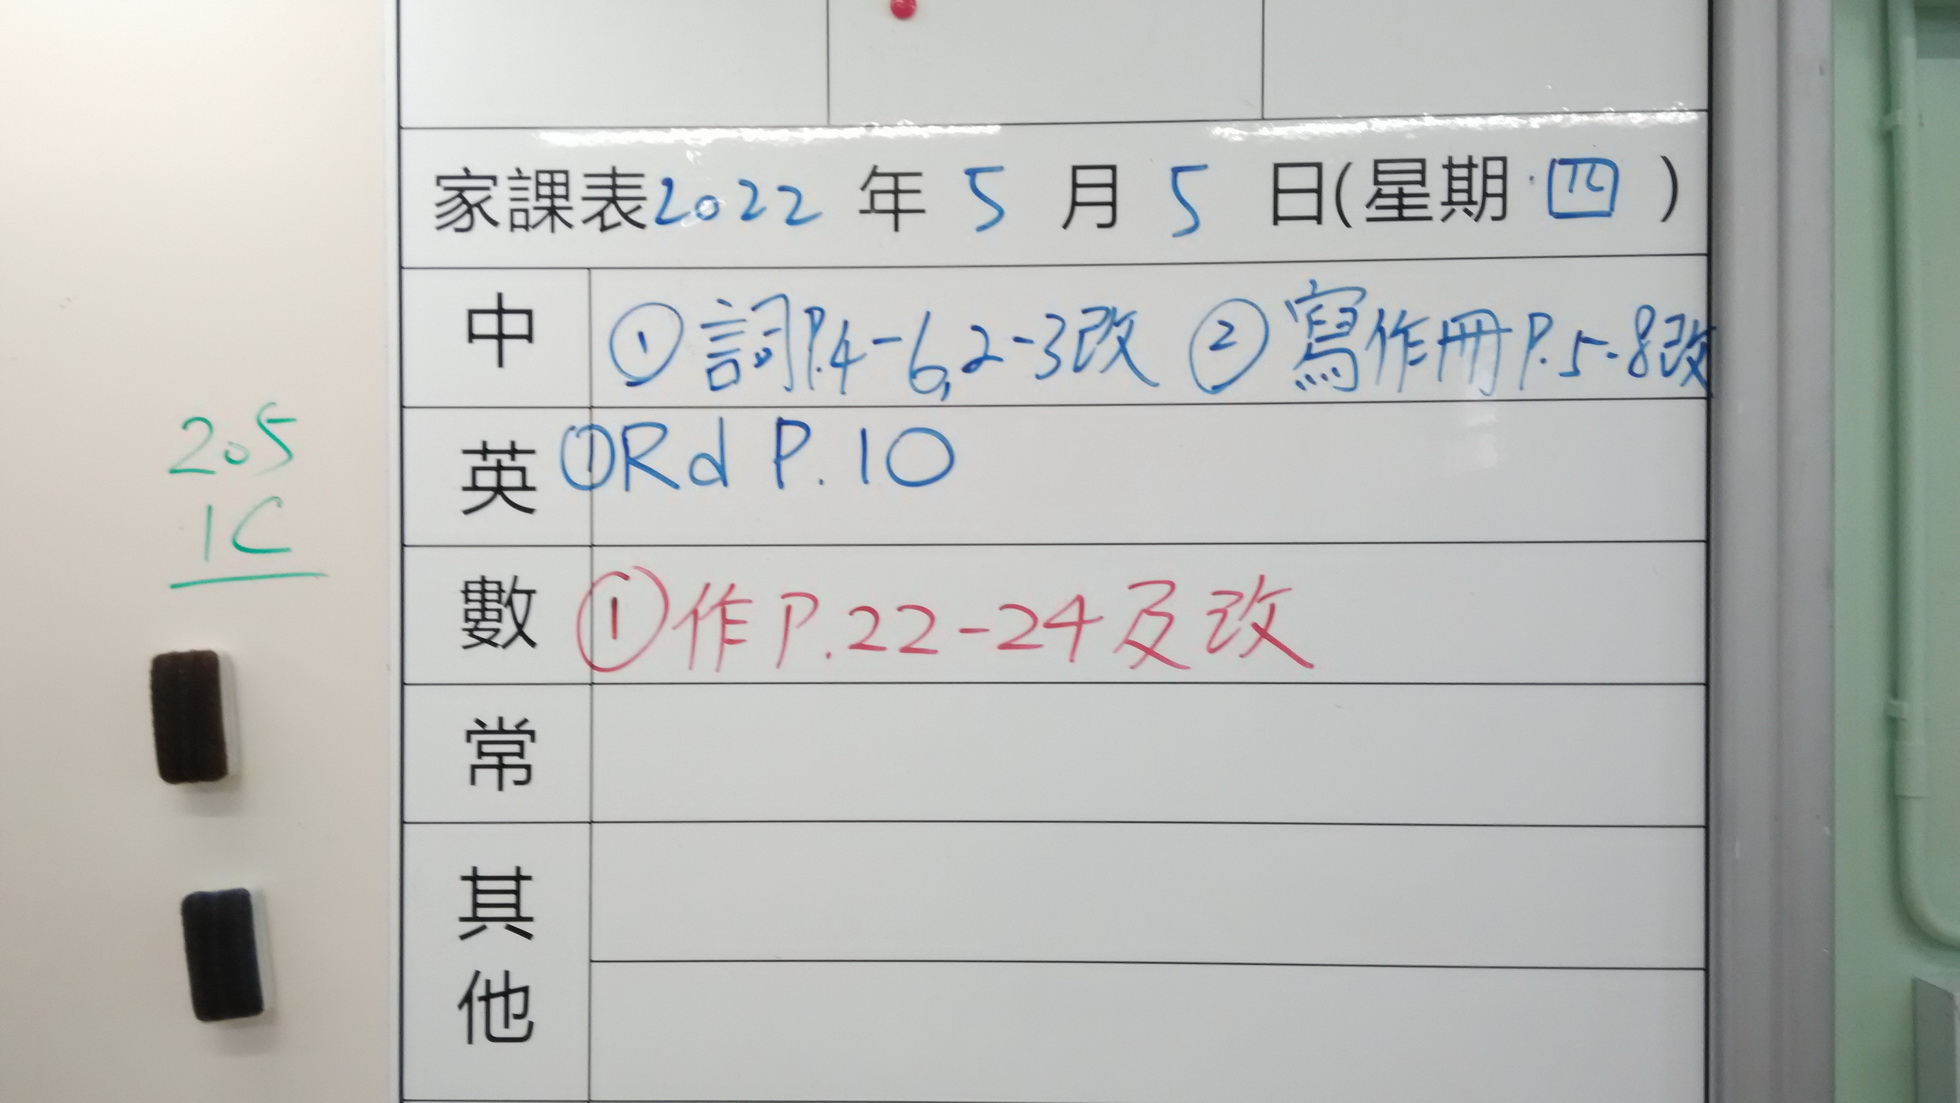 家課表2022年5月5日(星期四)
中 ①詞P.4-6,2-3改 ②寫作冊P.5-8改
英 ①Rd P.10
數 ①作P.22-24及改
常
其他
205
1C